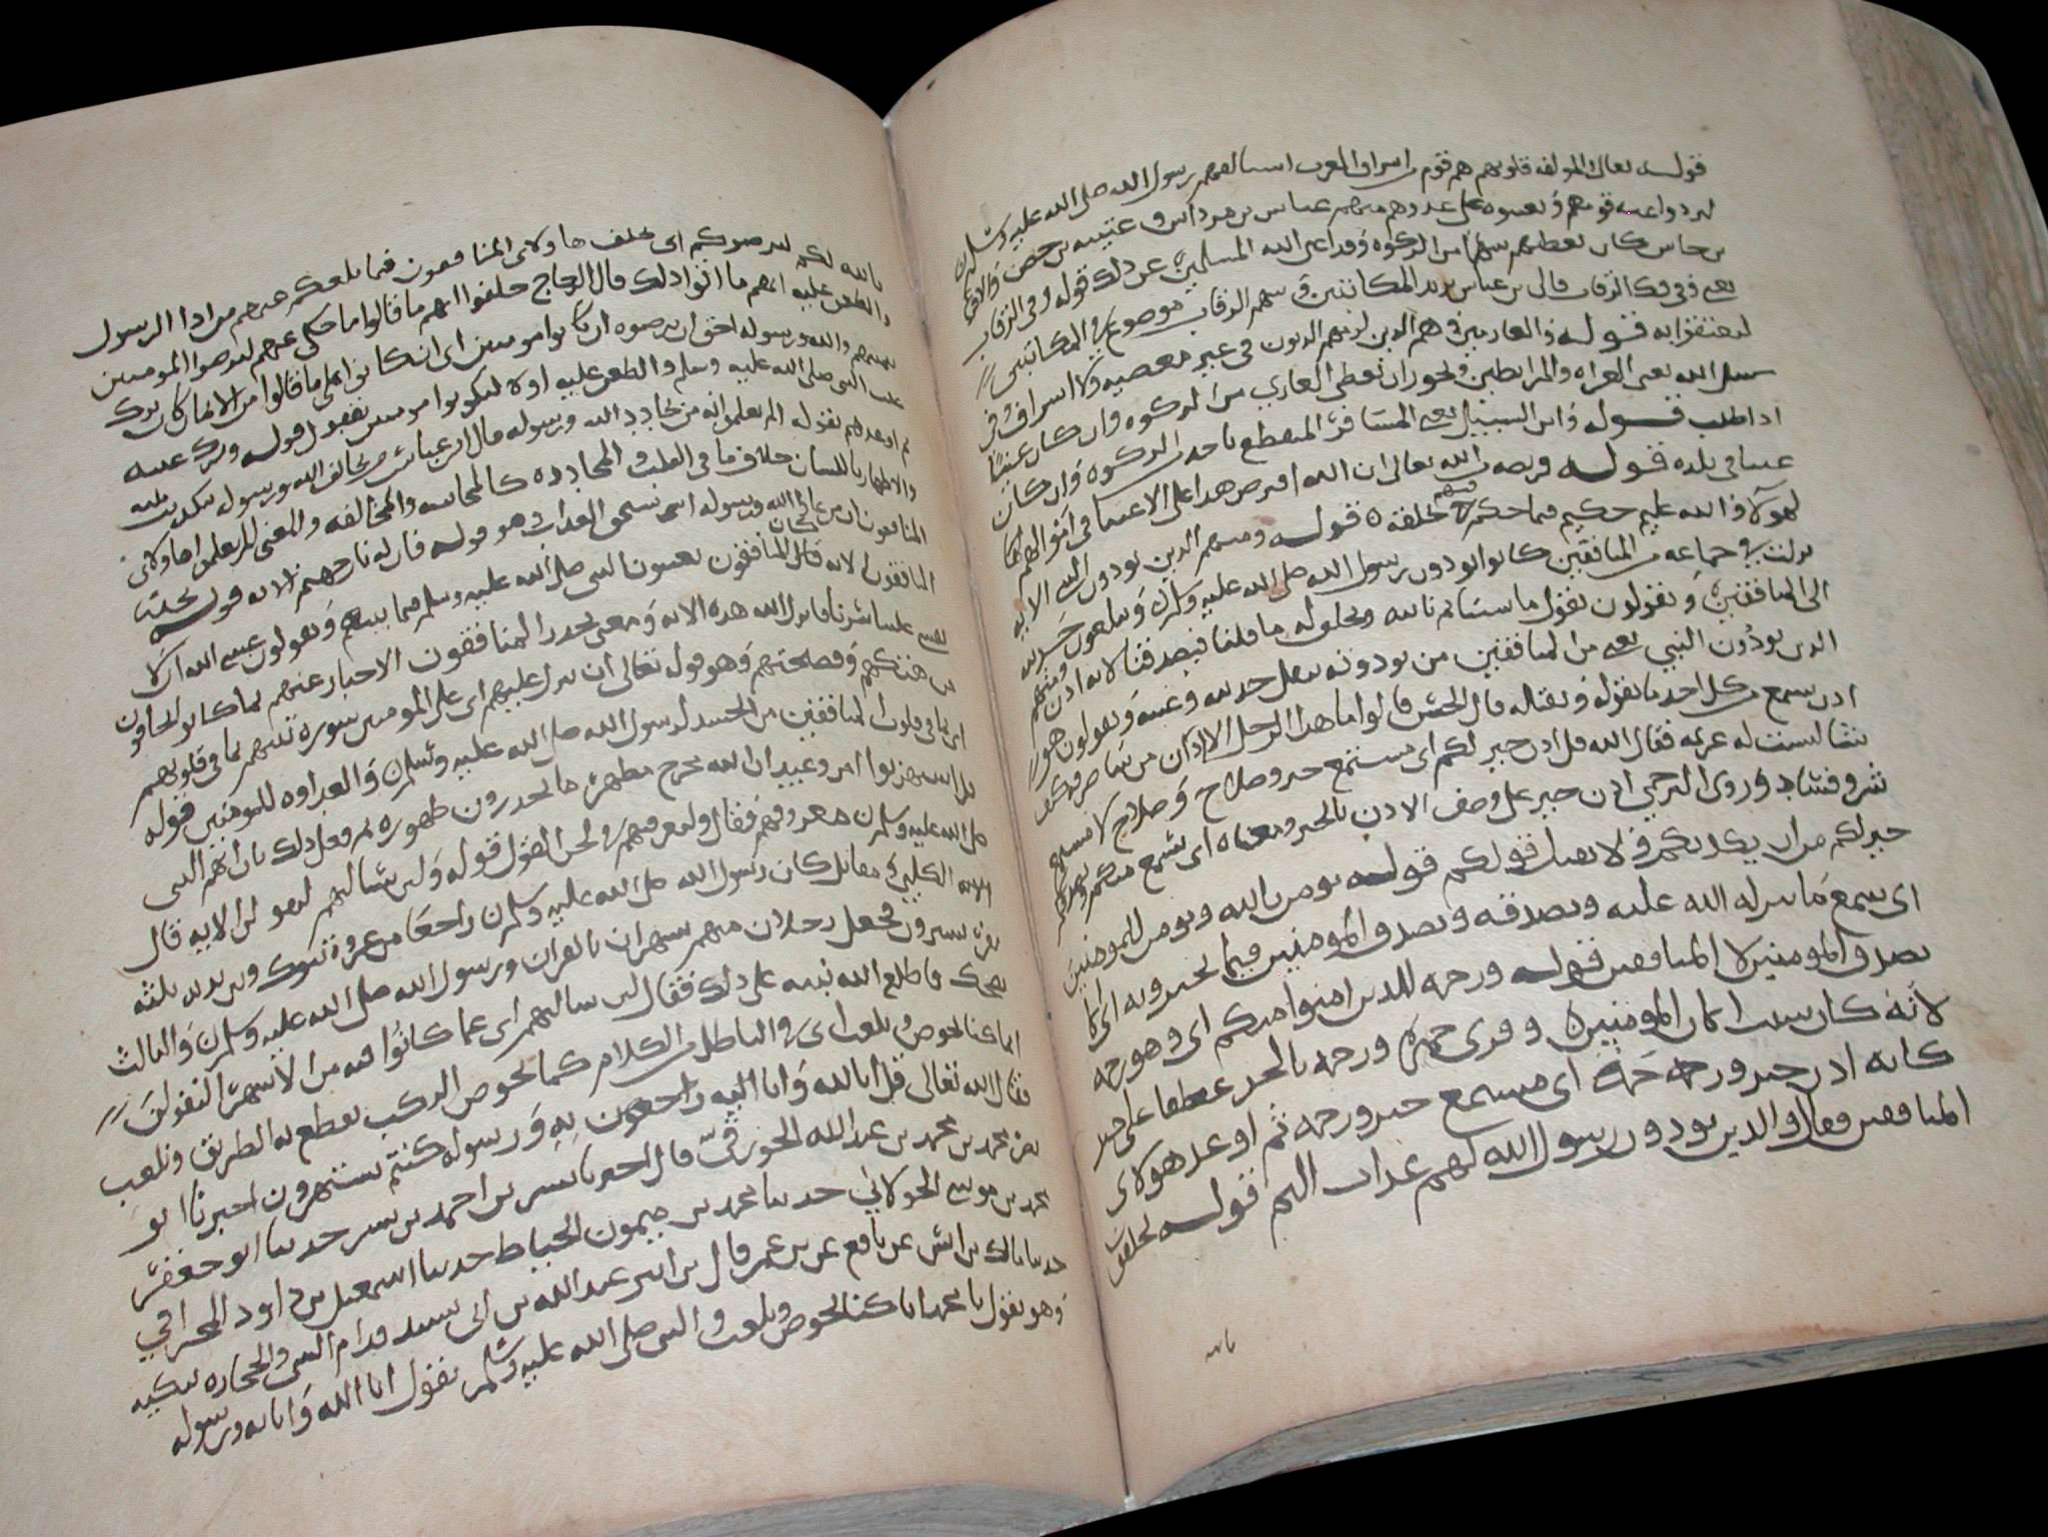 قوله تعالى والمولفه قلوبهم هم قوم من اشراف العرب استالفهم رسول الله صلى الله عليه وسلم
ليردوا عنه قومهم ويعينوه على عدوهم منهم عباس بن مرداس وعيينه بن حصن والاقرع
بن حابس كان يعطيهم سهما من الزكوه وقد اغنى الله المسلمين عن ذلك قوله وفي الرقاب
يعني وفي فك الرقاب قال بن عباس يريد المكاتبين وسهم الرقاب موضوع في المكاتبين
ليعتقوا به قوله والغارمين هم الذين لزمهم الديون في غير معصيه ولا اسراف وفي
سبيل الله يعني الغزاه والمرابطين ويجوز ان يعطى الغازي من الزكوه وان كان غنيا
اذا طلب قوله وابن السبيل يعني المسافر المنقطع ياخذ من الزكوه وان كان
غنيا في بلده قوله فريضه من الله تعالى ان الله افترض هذا على الاغنيا في اموالهم
لهولا والله عليم حكيم فيما حكم في خلقه قوله ومنهم الذين يوذون النبي الايه
نزلت في جماعه من المنافقين كانوا يوذون رسول الله صلى الله عليه وسلم
الى المنافقين ويقولون نقول ما شينا ثم ناتيه ونحلف له ما قلنا فيصدقنا لانه اذن ومنهم
الذين يوذون النبي يعني من المنافقين من يوذونه بنقل حديثه وعيبه ويقولون هو
اذن يسمع من كل احد ما يقوله ويقبله قال الحسن قالوا ما هذا الرجل الا اذن من شا صرفه كيف
شا ليست له عزيمه فقال الله قل اذن خير لكم اي مستمع خير وصلاح لا مستمع
شر وفساد وروى البرجمي اذن خير على وصف الاذن بالخير ومعناه اي يسمع منكم ويصدقكم
خير لكم من ان يكذبكم ولا يقبل قولكم قوله يومن بالله ويومن للمومنين
اي يسمع ما ينزله الله عليه ويصدقه ويصدق المومنين فيما يخبرونه
يصدق المومنين لا المنافقين قوله ورحمه للذين امنوا منكم اي وهو رحمه
لانه كان سبب ايمان المومنين وقرى حمزه ورحمه بالجر عطفا على خير
كانه اذن خير ورحمه اي مستمع خير ورحمه ثم اوعد هولاى
المنافقين فقال والذين يوذون رسول الله لهم عذاب اليم قوله يحلفون
بالله
بالله لكم ليرضوكم اي يحلف هاولاى المنافقون فيما بلغكم عنهم من اذا الرسول
والطعن عليه انهم ما اتوا ذلك قال الزجاج حلفوا انهم ما قالوا ما حكي عنهم ليرضوا المومنين
والله ورسوله احق ان يرضوه ان كانوا مومنين اي ان كانوا على ما قالوا من الايمان كان ترك
عيب النبي صلى الله عليه وسلم والطعن عليه اولا ليكونوا مومنين بفعل قوله وترك عيبه
ثم اوعدهم بقوله الم يعلموا انه من يحادد الله ورسوله قال ابن عباس من يخالف الله ورسوله بتكذيب نبيه
والاظهار باللسان خلاف ما في القلب والمحادده كالمجانبه والمخالفه والمعنى الم يعلموا هاولاى
المنافقون ان من عادى الله ورسوله استحق العذاب وهو قوله فان له نار جهنم الايه قوله يحذر
المنافقون الايه كان المنافقون يعيبون النبي صلى الله عليه وسلم فيما بينهم ويقولون عسى الله ان لا
يفشي علينا سرنا فانزل الله هذه الايه ومعنى يحذر المنافقون الاخبار عنهم بما كانوا يخافون
من هتكهم وفضيحتهم وهو قول تعالى ان تنزل عليهم اي على المومنين سوره تنبيهم بما في قلوبهم
اي بما في قلوب المنافقين من الحسد لرسول الله صلى الله عليه وسلم والعداوه للمومنين قوله
قل استهزوا امر وعيد ان الله مخرج مظهر ما تحذرون ظهوره ثم وفعل ذلك بان الهم النبي
صلى الله عليه وسلم معروفهم فقال ولتعرفنهم في لحن القول قوله ولين سالتهم ليقولن الايه قال
الكلبي ومقاتل كان رسول الله صلى الله عليه وسلم راجعا من غزوه تبوك وبين يديه ثلثه
نفر يسيرون فجعل رجلان منهم يستهزيان بالقران ورسول الله صلى الله عليه وسلم والثالث
يضحك فاطلع الله نبيه على ذلك فقال لين سالتهم اي عما كانوا فيه من الاستهزا ليقولن
انما كنا نخوض ونلعب اي في الباطل من الكلام كما يخوض الركب يقطع به الطريق ونلعب
فقال الله تعالى قل ابالله واياته ورسوله كنتم تستهزون اخبرنا ابو
نصر محمد بن محمد بن عبد الله الجوزقي قال اخبرنا بشر بن احمد بن بشر حدثنا ابو جعفر
محمد بن موسى الحولاني حدثنا محمد بن ميمون الخياط حدثنا اسمعيل بن داود المخراقي
حدثنا مالك بن انس عن نافع عن بن عمر قال رايت عبد الله بن ابي يشتد قدام النبي والحجاره تنكبه
وهو يقول يا محمد انما كنا نخوض ونلعب والنبي صلى الله عليه وسلم يقول ابالله واياته ورسوله